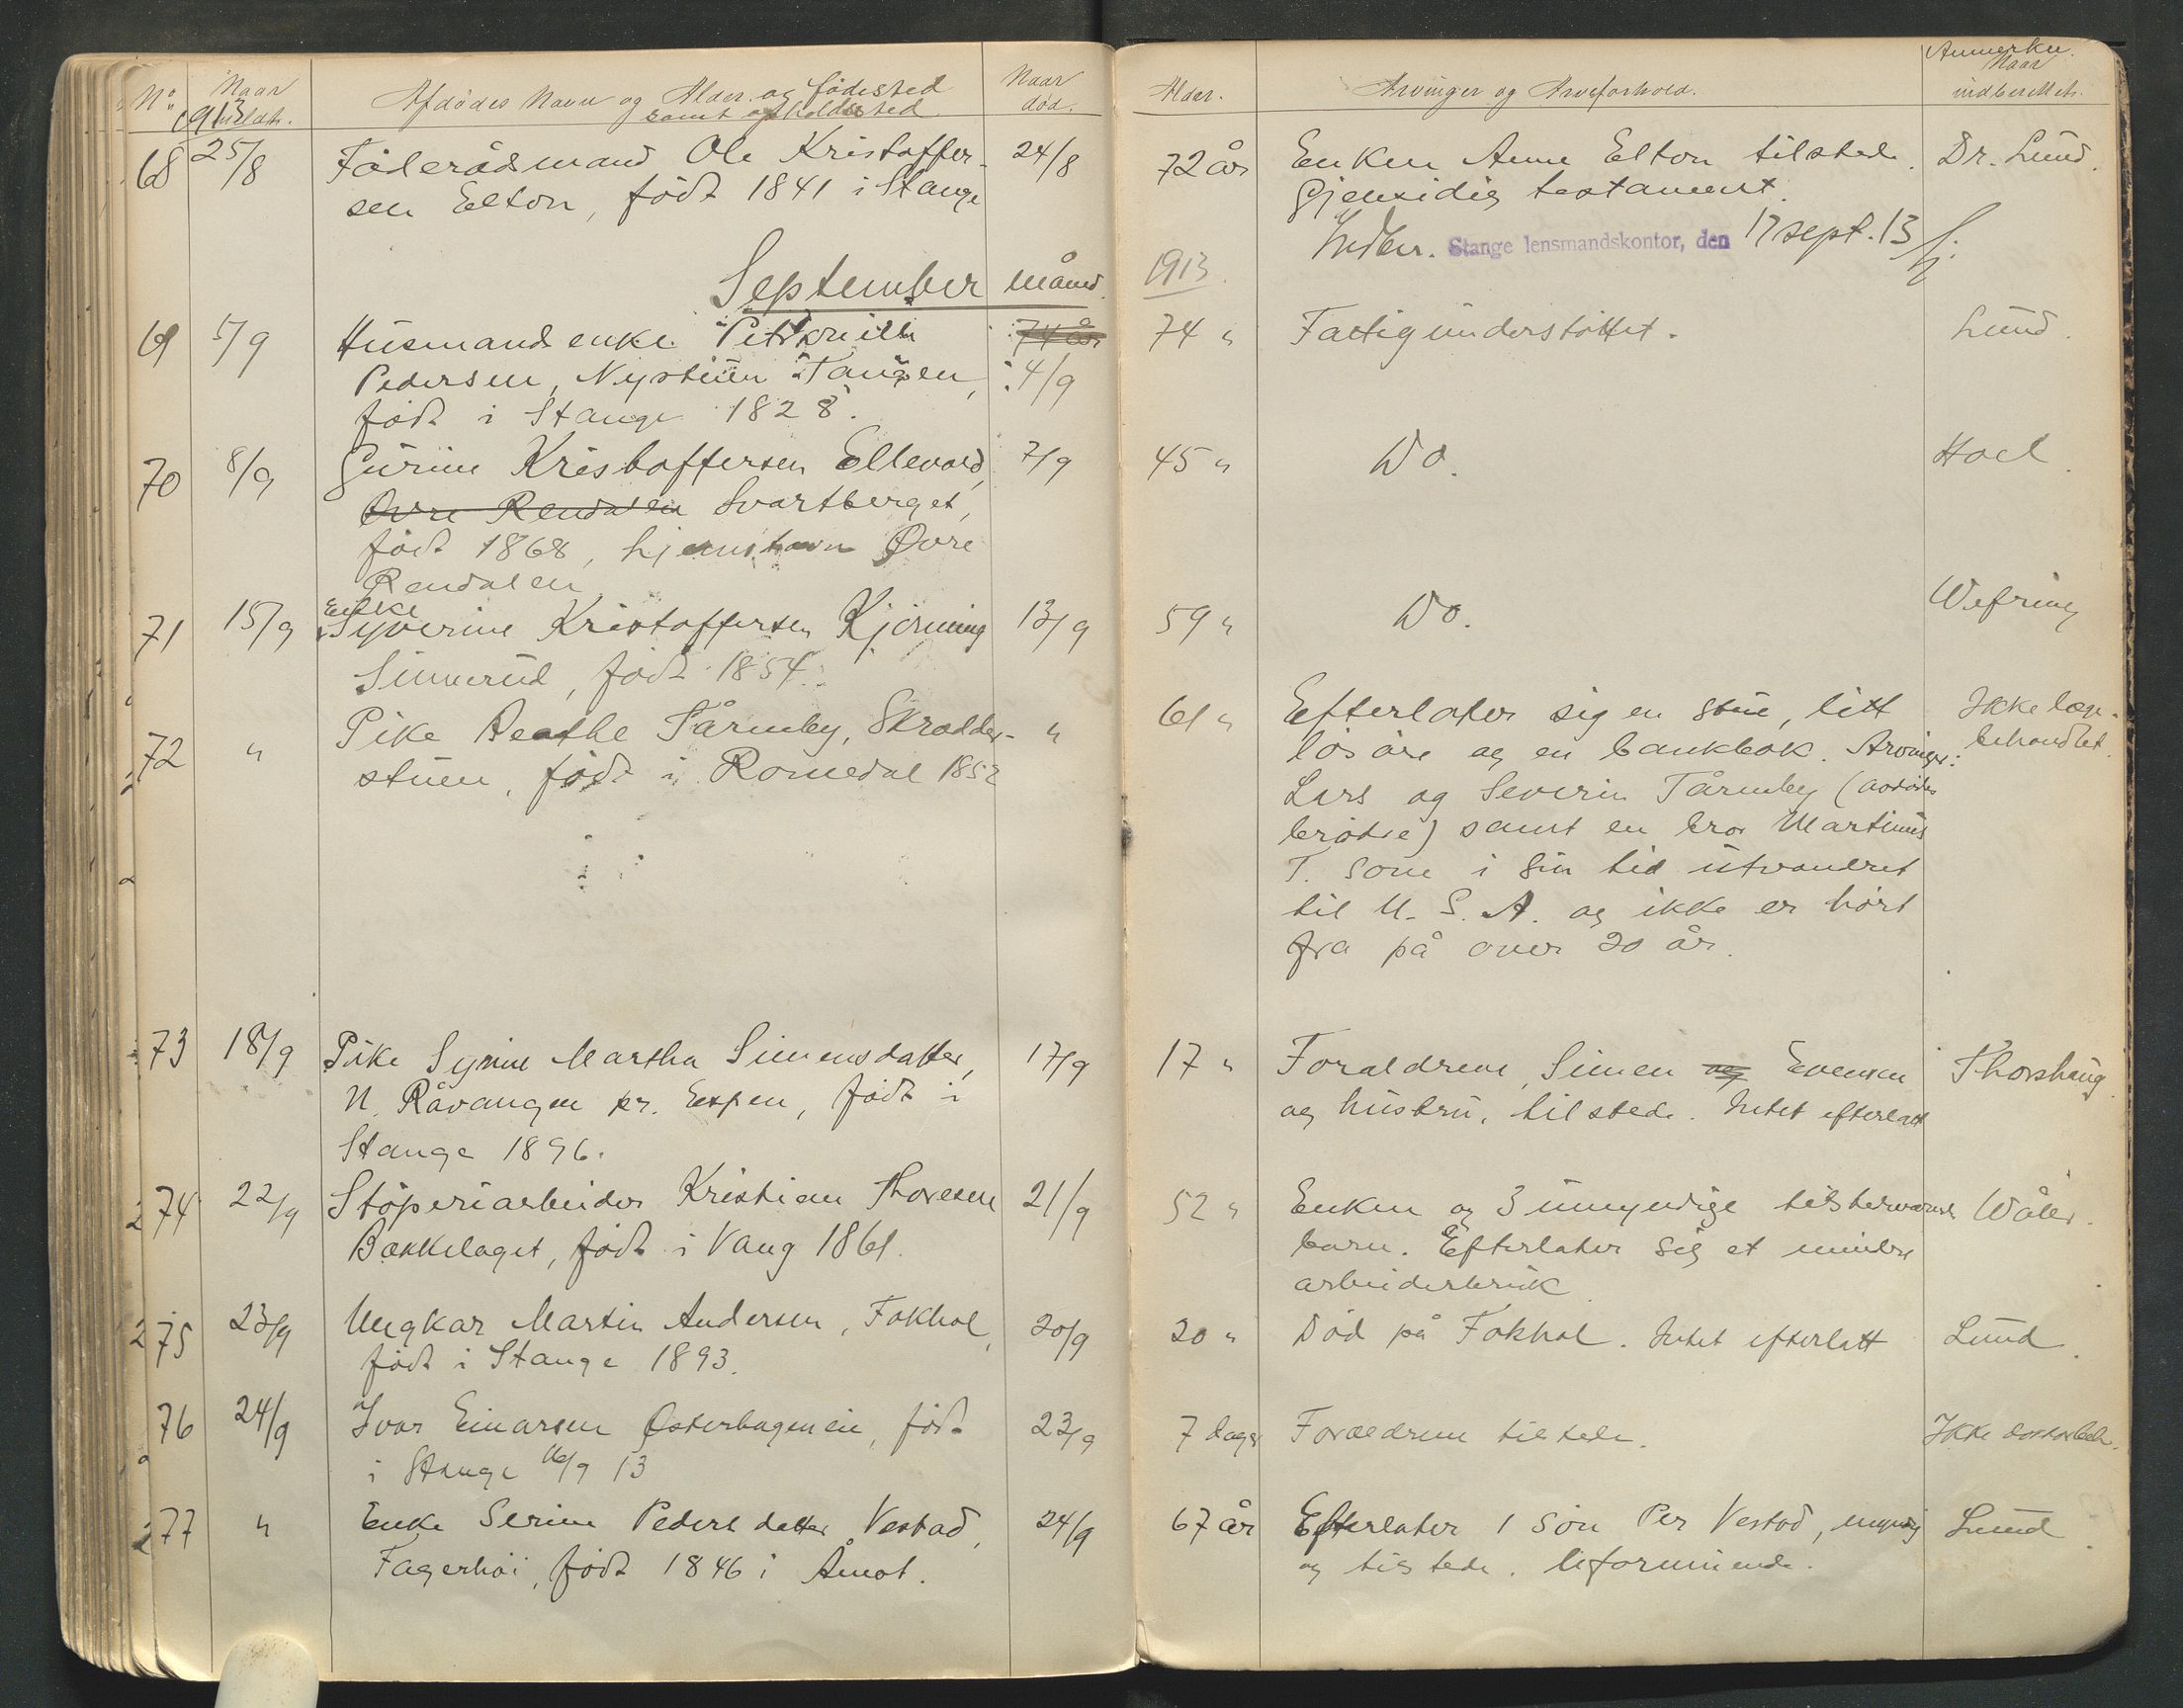 No
Naar
1913
meldt.
Afdødes Navn og Alder og fødested
samt opholdssted
Naar
død.
Alder.
Arvinger og Arveforhold.
Anmerkn.
Naar
indberettet.
68 25/8 Föderådsmand Ole Kristoffer- 24/8 72 år Enken Anne Elton tilstede. Dr. Lund.
sen Elton, født 1841 i Stange Gjensidig testament.
Indber. Stange lensmandskontor, den 17 sept. 13
September måned 1913.
69 5/9 Husmandsenke Petronille 74 år 74 " Fattigunderstøttet. Lund.
Pedersen, Nystuen i Tangen, 4/9
født i Stange 1828.
70 8/9 Gurine Kristoffersen Ellevold, 7/9 45 " Do. Hoel.
Øvre Rendalen Svartberget,
født 1868, hjemstavn Øvre
Rendalen
71 15/9 Enke Syverine Kristoffersen Kjerning 13/9 59 " Do. Wefring
Simerud, født 1854.
72 " Pike Beathe Tårneby, Skrædder- " 61 " Efterlater sig en stue, litt Ikke læge-
stuen, født i Romedal 1852 løsøre og en bankbok. Arvinger: behandlet.
Lars og Severin Tårneby (avdødes
brødre) samt en bror Martinus
T. som i sin tid utvandret
til U. S. A. og ikke er hørt
fra på over 20 år.
73 18/9 Pike Syrine Martha Simensdatter, 17/9 17 " Forældrene, Simen og Evensen Thorshaug
N. Råvangen pr. Espen, født i og hustru, tilstede. Intet efterlatt
Stange 1896.
274 22/9 Støperiarbeider Kristian Thoresen 21/9 52 " Enken og 3 umyndige tilstedeværende Wåler.
Bækkelaget, født i Vang 1861. barn. Efterlater sig et mindre
arbeiderbruk
275 23/9 Ungkar Martin Andersen, Fokhol, 20/9 20 " Død på Fokhol. Intet efterlatt Lund.
født i Stange 1893.
76 24/9 Ivar Einarsen Østerhagen eie, født 23/9 7 dager Forældrene tilstede. Ikke doktorbeh.
i Stange 16/9 13
277 " Enke Serine Pedersdatter Vestad, 24/9 67 år Efterlater 1 søn Per Vestad, myndig Lund.
Fagerhøi, født 1846 i Åmot. og tilstede. Uformuende.